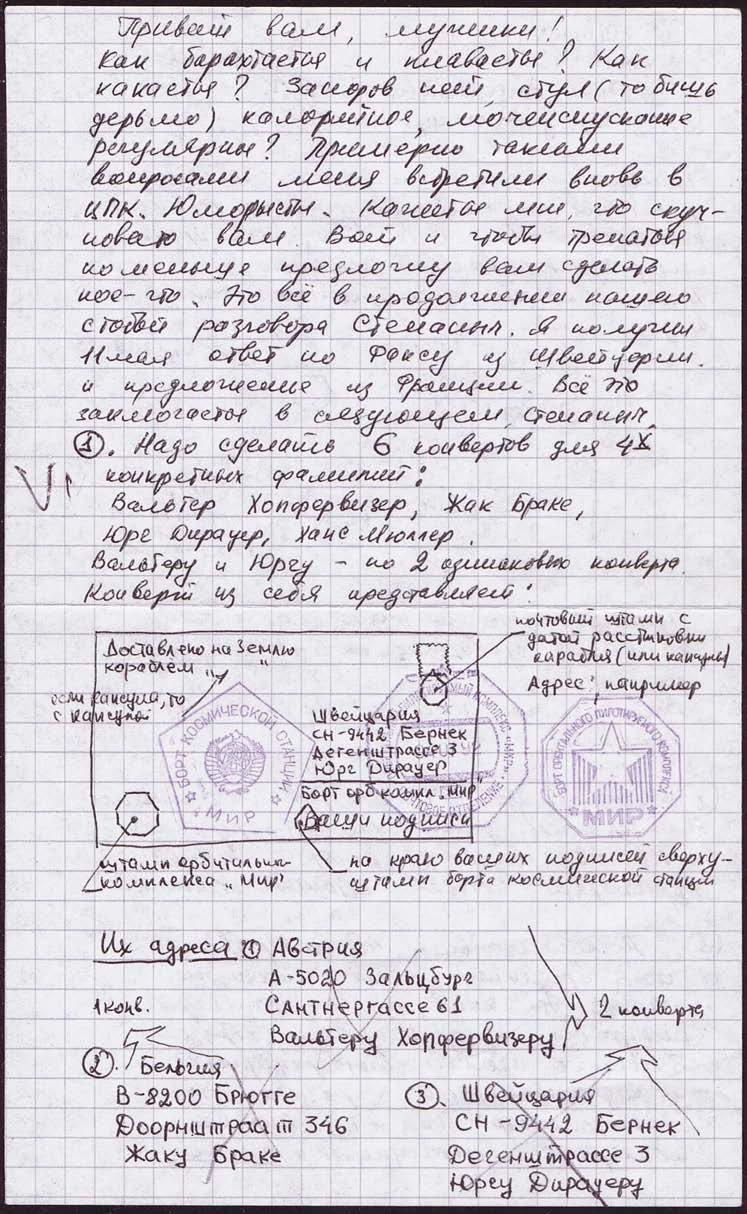 Привет вам, мужики!
Как барахтаетья и плаваетья? Как
какаетья? Запоров нет, стул (то бишь
дерьмо) калорийное, мочеиспускание
регулярное? Примерно такими
вопросами меня встретили вновь в
ЦПК. Юмористы. Кажетья мне, что скуч-
новато вам. Вот и чтобы трепаться
поменьше предложу вам сделать
кое-что. Это всё в продолжении нашего
с тобой разговора Степаныч. Я получил
11 мая ответ по факсу из Швейцерии.
и предложение из Франции. Всё это
заключаетья в следующем, Степаныч.
1. Надо сделать 6 конвертов для 4х
конкретных фамилий:
V
Вальтер Хопфервизер, Жак Браке,
Юрг Дирауер, Ханс Мюллер.
Вальтеру и Юргу - по 2 одинаковых конверта.
Конверт из себя представляет:
почтовый штамп с
датой расстыковки
карабля (или капсулы)
Адрес; например
Доставлено на Землю
кораблём „ "
если капсула, то
с капсулой
Швейцария
CH-9442 Бернек
Дегенштрассе 3
Юрг Дирауер
Борт орб. компл. „Мир"
Ваши подписи
БОРТ КОСМИЧЕСКОЙ СТАНЦИИ
МИР
КОМПЛЕКС "МИР"
ПОЧТОВОЕ ОТДЕЛЕНИЕ
БОРТ ОРБИТАЛЬНОГО ПИЛОТИРУЕМОГО КОМПЛЕКСА
МИР
штамп орбитальн.
комплекса „Мир"
на краю ваших подписей сверху-
штамп борта космической станции
Их адреса 1 Австрия
А-5020 Зальцбург
Сантнергассе 61
Вальтеру Хопфервизеру
2 конверта
1 конв.
2. Бельгия
В-8200 Брюгге
Доорнштраат 346
Жаку Браке
3. Швейцария
CH-9442 Бернек
Дегенштрассе 3
Юргу Дирауеру